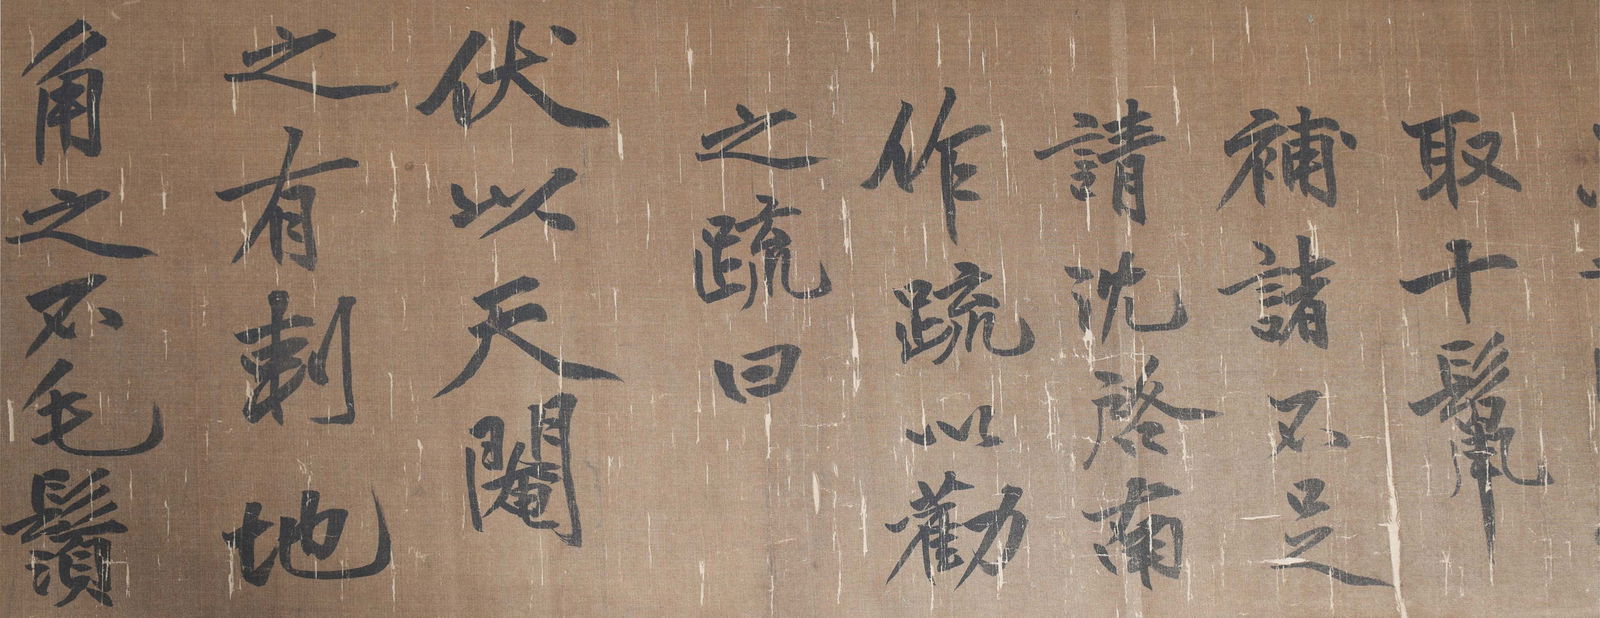 取十鬣
補諸不足
請沈啓南
作疏以勸
之疏曰
伏以天閹
之有刺地
角之不毛鬚